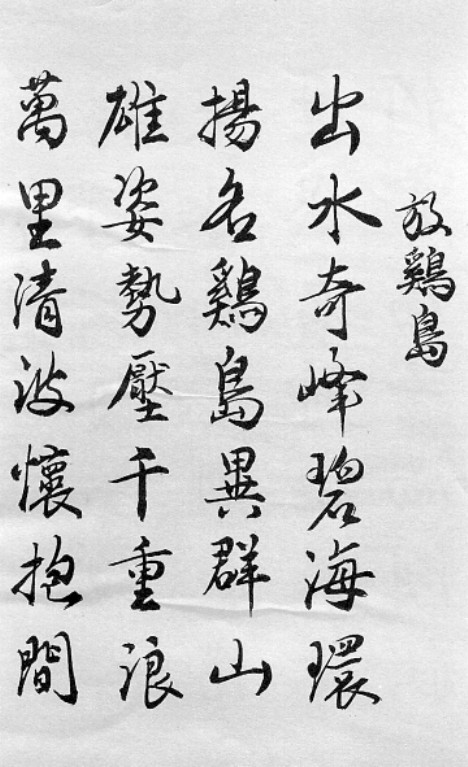 放鷄島
出水奇峰碧海環
揚名鷄島異群山
雄姿勢壓千重浪
萬里清波懷抱間